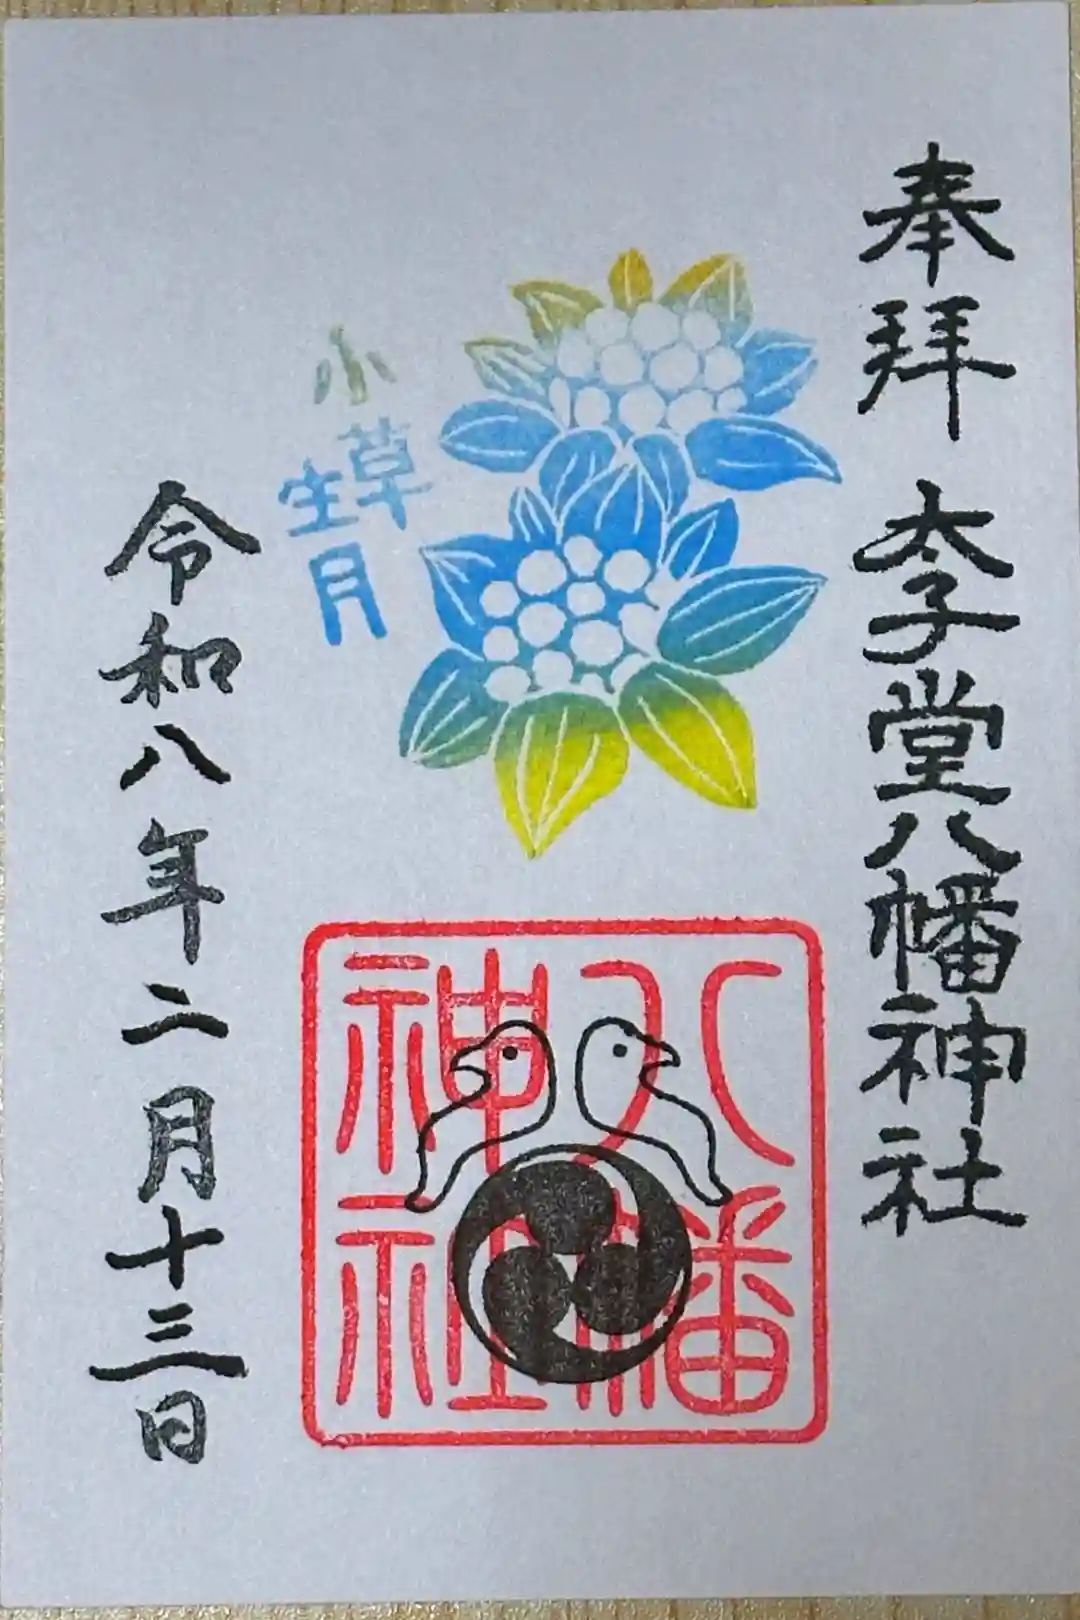 奉拝 太子堂八幡神社
小草生月
八幡神社
令和八年二月十三日